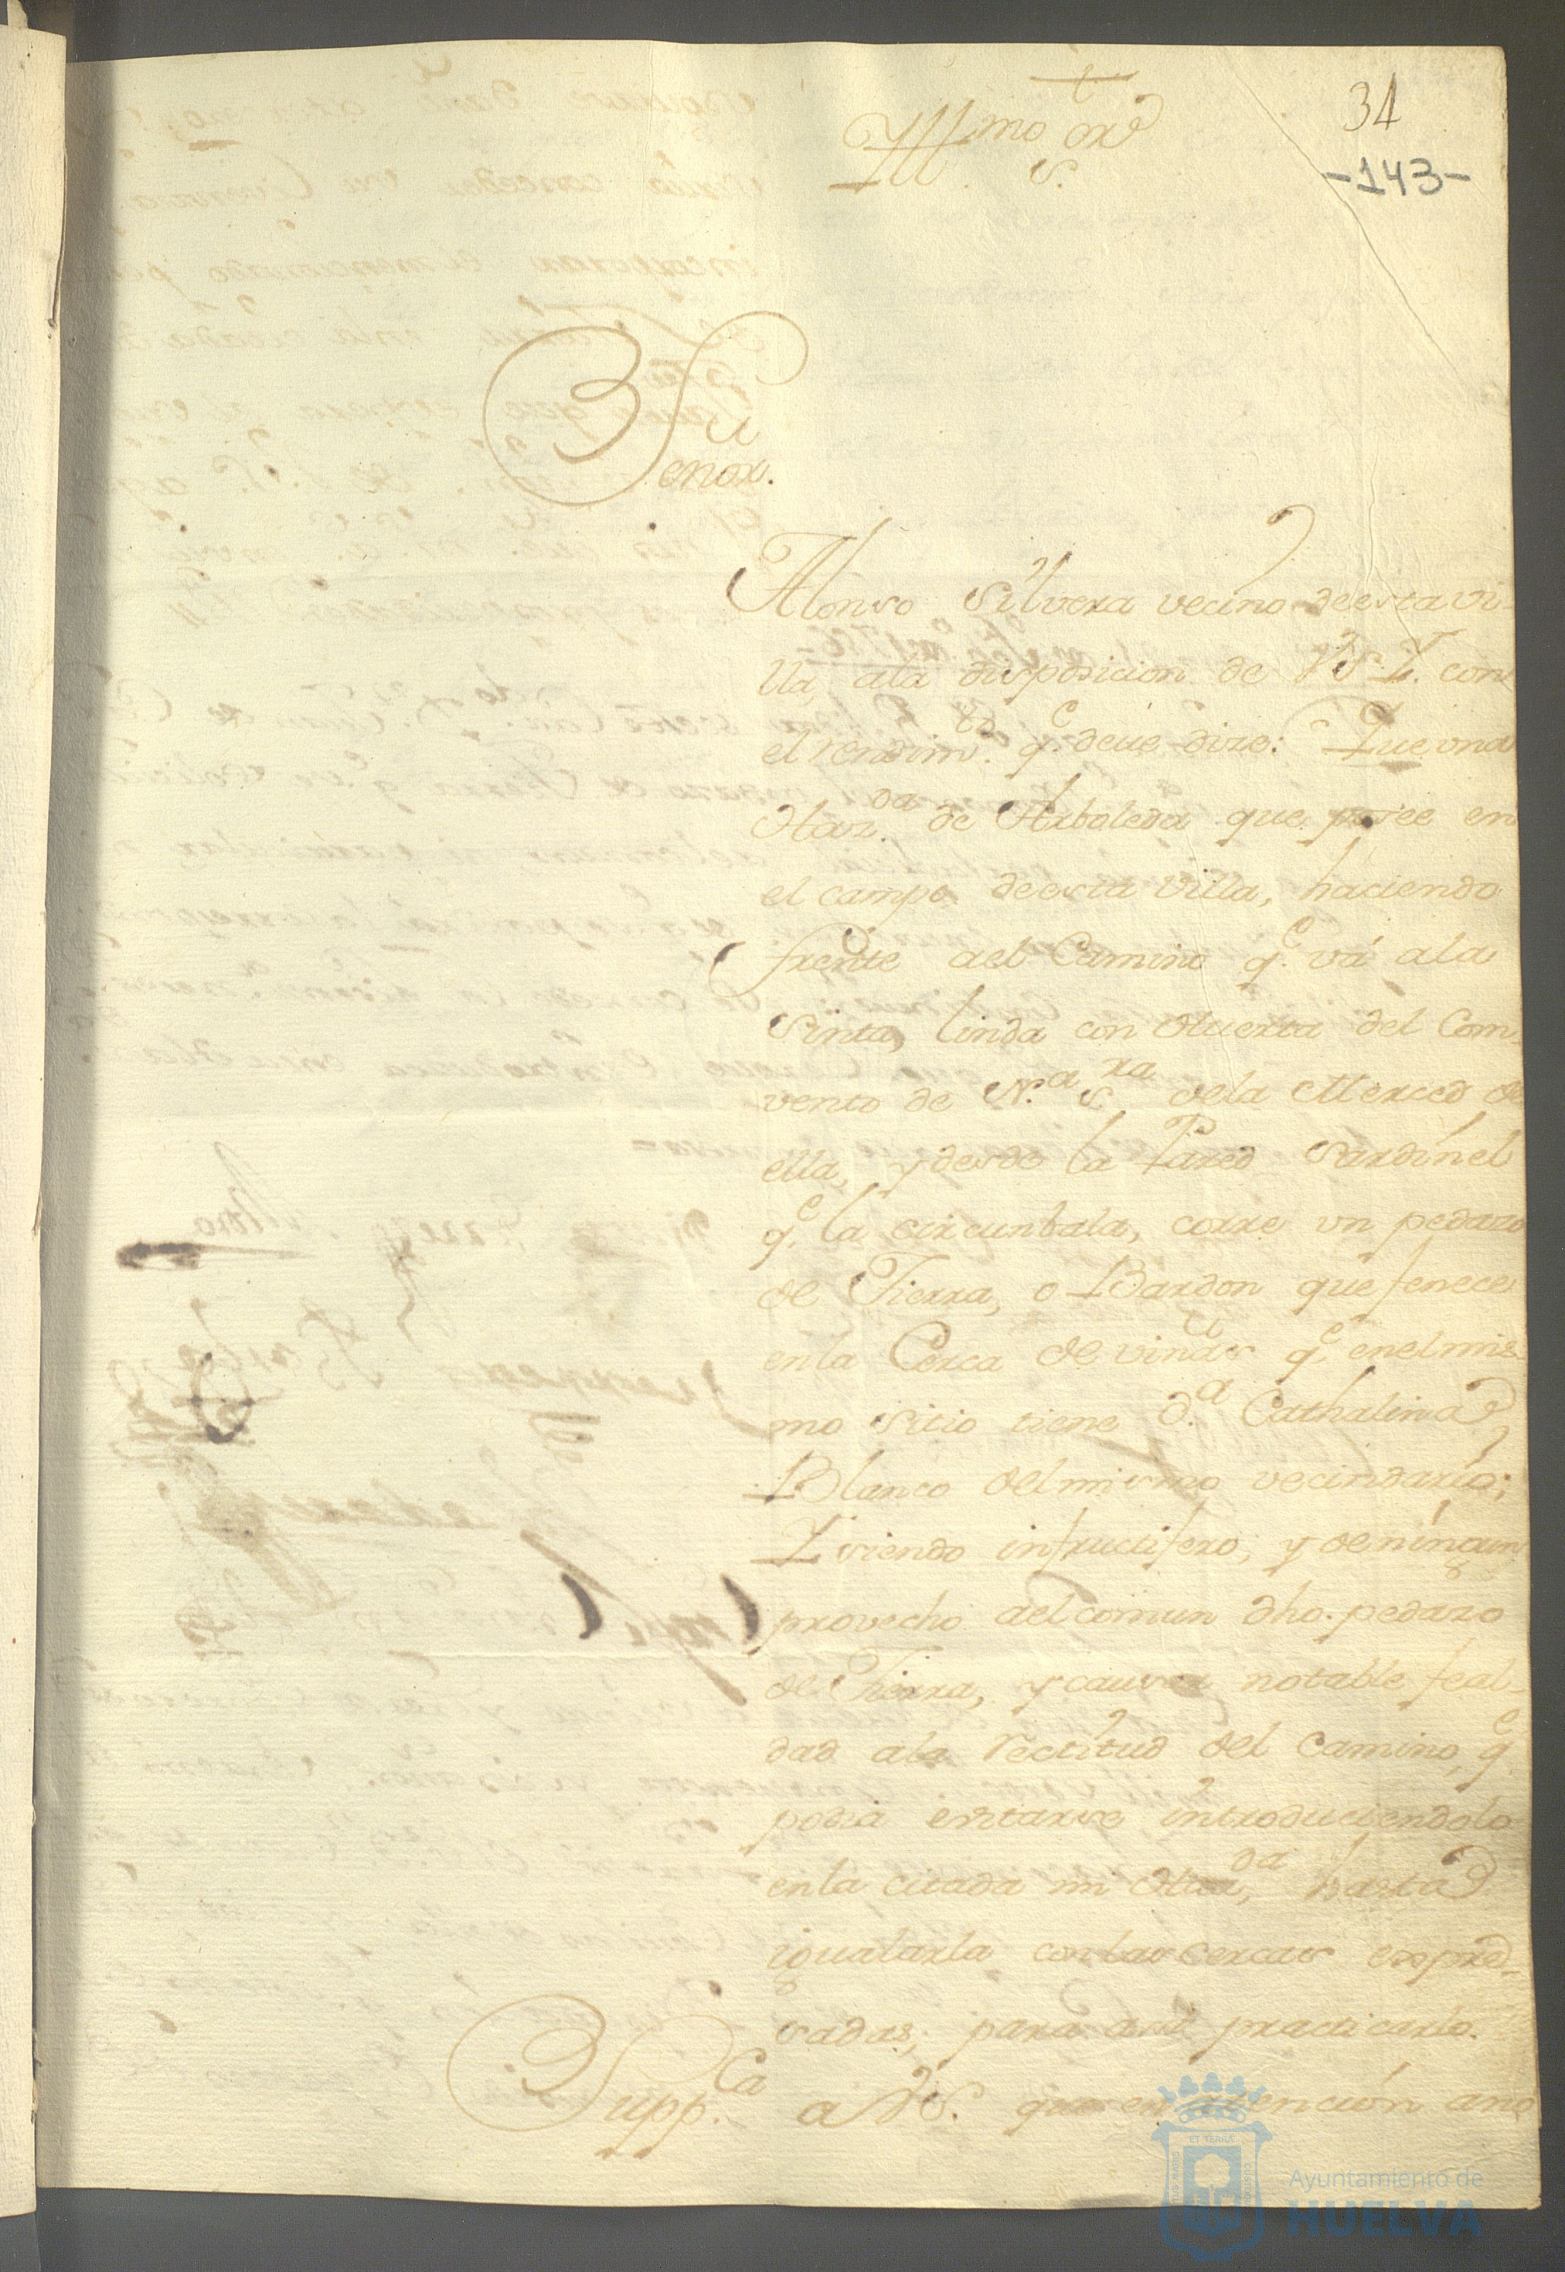 34
-143-
Yllmo Sor
Señor.
Alonso Silvera vecino de esta vi-
lla, ala disposicion de V.S.Y. con
el rendimto. qe. deue dize: Que una
Hazda. de Arboleda que posee en
el campo de esta Villa, haciendo
frente ael Camino qe. vá ala
Sinta, linda con Huerta del Com-
vento de N.a S.ra dela Merced de
ella, y desde la Pared Sardinel
qe. la circunbala, corre un pedazo
de Tierra, o Bardon que fenece
en la Cerca de viñas qe. en el mis-
mo sitio tiene D.a Cathalina
Blanco del mismo vecindario;
Y siendo infructifero, y de ningun
provecho ael comun dho. pedazo
de Tierra, y causar notable feal-
dad ala rectitud del Camino, qe.
podia evitarse introduciendolo
en la citada mi Hazda, hasta
igualarla con las cercas expre-
sadas; para asi practicarlo.
Supp.ca a V.S. que en atención a
Ayuntamiento de
HUELVA